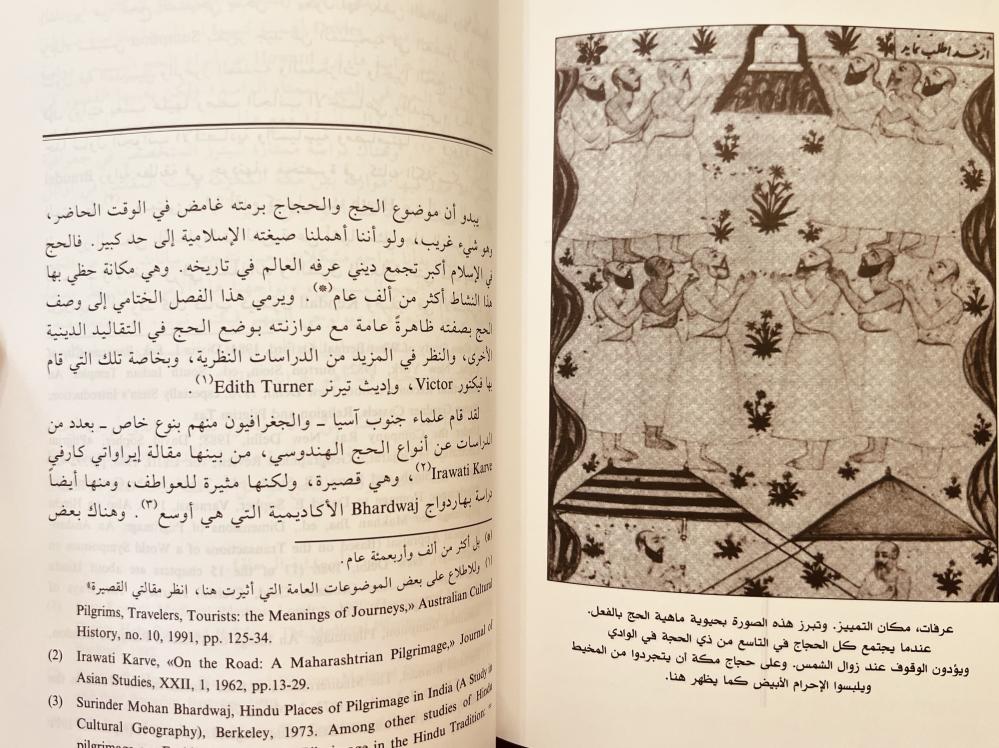 از خدا طلب نماید
عرفات، مكان التمييز. وتبرز هذه الصورة بحيوية ماهية الحج بالفعل.
عندما يجتمع كل الحجاج في التاسع من ذي الحجة في الوادي
ويؤدون الوقوف عند زوال الشمس. وعلى حجاج مكة أن يتجردوا من المخيط
ويلبسوا الإحرام الأبيض كما يظهر هنا.
يبدو أن موضوع الحج والحجاج برمته غامض في الوقت الحاضر،
وهو شيء غريب، ولو أننا أهملنا صيغته الإسلامية إلى حد كبير. فالحج
في الإسلام أكبر تجمع ديني عرفه العالم في تاريخه. وهي مكانة حظي بها
هذا النشاط أكثر من ألف عام(*). ويرمي هذا الفصل الختامي إلى وصف
الحج بصفته ظاهرةً عامة مع موازنته بوضع الحج في التقاليد الدينية
الأخرى، والنظر في المزيد من الدراسات النظرية، وبخاصة تلك التي قام
بها فيكتور Victor، وإديث تيرنر Edith Turner(١).
لقد قام علماء جنوب آسيا ـ والجغرافيون منهم بنوع خاص ـ بعدد من
الدراسات عن أنواع الحج الهندوسي، من بينها مقالة إيراواتي كارفي
Irawati Karve(٢)، وهي قصيرة، ولكنها مثيرة للعواطف، ومنها أيضاً
دراسة بهاردواج Bhardwaj الأكاديمية التي هي أوسع(٣). وهناك بعض
(*) بل أكثر من ألف وأربعمئة عام.
(١) وللاطلاع على بعض الموضوعات العامة التي أثيرت هنا، انظر مقالتي القصيرة»
Pilgrims, Travelers, Tourists: the Meanings of Journeys,» Australian Cultural
History, no. 10, 1991, pp. 125-34.
(2) Irawati Karve, «On the Road: A Maharashtrian Pilgrimage,» Journal of
Asian Studies, XXII, 1, 1962, pp.13-29.
(3) Surinder Mohan Bhardwaj, Hindu Places of Pilgrimage in India (A Study in
Cultural Geography), Berkeley, 1973. Among other studies of Hindu
in the Hindu Tradition: